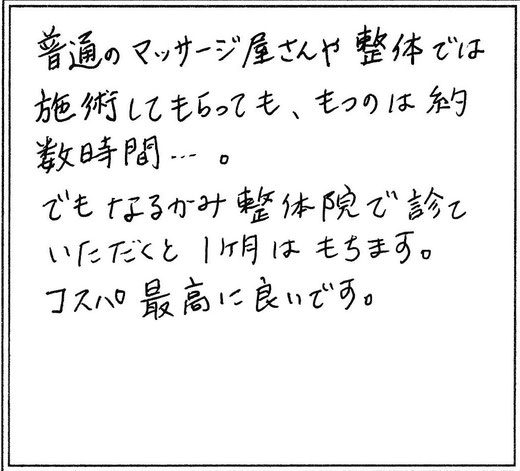 普通のマッサージ屋さんや整体では
施術してもらっても、もつのは約
数時間…。
でもなるかみ整体院で診て
いただくと1ヶ月はもちます。
コスパ最高に良いです。